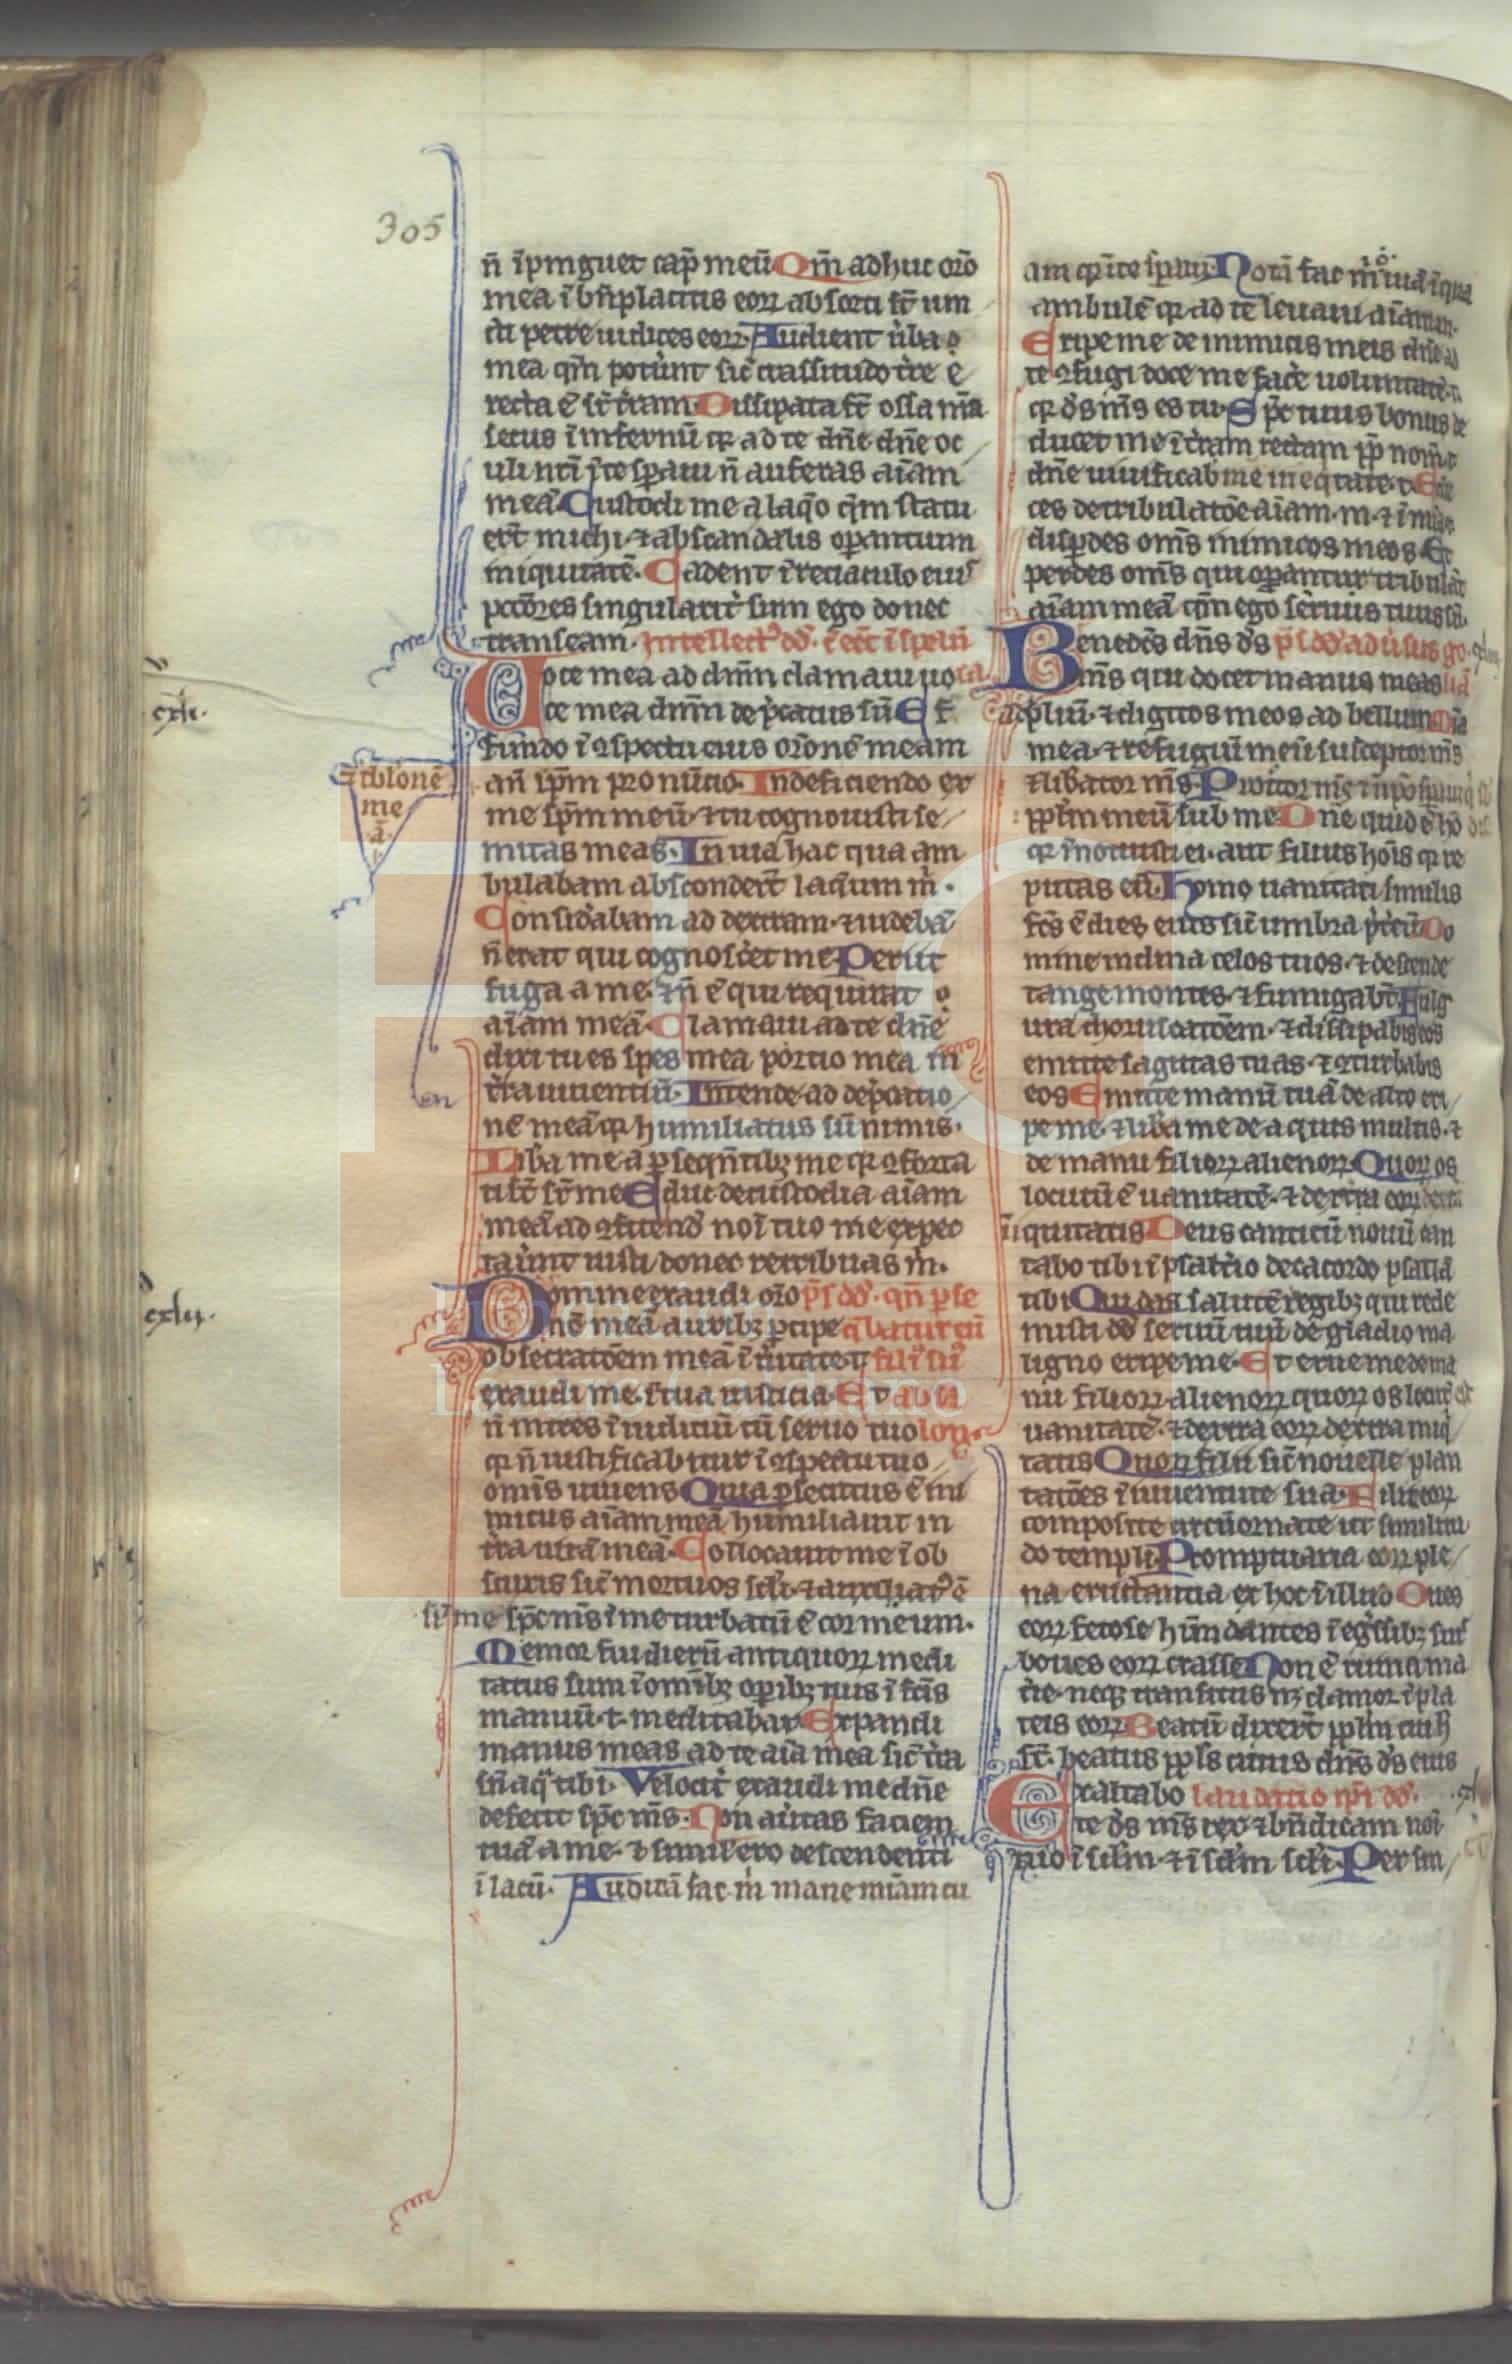 305
n̄ īpinguet cap̄ meū Qm̄ adhuc or̄o
mea ī bn̄placitis eorꝝ absorti st̄ iun
cti petre iudices eorꝝ. Audient ùba
mea qm̄ potùnt sic̄ crassitudo tr̀e e
recta ē sr̄ tr̀am. Dissipata st̄ ossa nr̄a
secus īinfernū qꝛ ad te dn̄e dn̄e oc
uli mī īte sꝑaui n̄ auferas aīam
meā. Custodi me a laq̄o qm̄ statu
ert̄ michi. ⁊ abscandalis oꝑantium
iniquitatē. Cadent ī reciaculo eius
pccōres singularit̀ sum ego donec
transeam. Intellect᷒ dd̄. c̄ eēt ī spelū
ca.
Uoce mea ad dn̄m clamaui uo
ce mea dn̄m dep̀catus sū Ef
fundo ī ꝯspectu eius or̄onē meam
⁊ tb̓lonē
me
ā
an̄ ip̄m pronūcio. Indeficiendo ex
me sp̄m meū ⁊ tu cognouisti se
mitas meas. In uia hac qua am
bulabam absconder̄t laq̄um m̀.
Consid̀abam ad dextram. ⁊ uidebā
n̄ erat qui cognosc̀et me Periit
fuga a me. ⁊ n̄ ē qui requirat
aīam meā. Clamaui ad te dn̄e
dixi tu es spes mea portio mea in
tr̀a uiuentiū. Intende ad dep̀catio
nē meā qꝛ humiliatus sū nimis.
Lib̀a me a ꝑseqn̄tibꝫ me qꝛ ꝯforta
ti st̄ sr̄ me Educ de custodia aīam
meā ad ꝯfitend̄ noī tuo me expec
tant iusti donec retribuas m̀.
cxli.
cxlii.
Domine exaudi or̄o p̄s dd̄. qn̄ ꝑse
nē meā auribꝫ ꝑcipe q̄batur eū
obsecratōem meā ī ùitate t. fili᷒ su᷒
exaudi me ī tua iusticia. Et absa
n̄ intres ī iudiciū cū seruo tuo lon.
qꝛ n̄ iustificabitur ī ꝯspectu tuo
om̄s uiuens Quia ꝑsecutus ē ini
micus aīam meā humiliauit in
tr̀a uitā meā. Collocauit me ī ob
scuris sic̄ mortuos scl̄i. ⁊ anxiat᷒ ē
sr̄ me sp̄c ms̄ ī me turbatū ē cor meum.
Memor fui dierū antiquorꝝ medi
tatus sum ī omībꝫ oꝑibꝫ tuis ī fc̄is
manuū. t. meditabar. Expandi
manus meas ad te aīa mea sic̄ tr̀a
sn̄ aq̄ tibi. Velocit̀ exaudi me dn̄e
defecit sp̄c ms̄. Non au̓tas faciem
tuā a me. ⁊ simil̓ ero descendenti
ī lacū. Auditā fac m̀ mane mīam tu
am qꝛ ī te sꝑaui. Notā fac m̀ uiā ī qua
ambulē qꝛ ad te leuaui aīam m.
Eripe me de inimicis meis dn̄e ad
te ꝯfugi doce me fac̀e uoluntatē t.
qꝛ ds̄ ms̄ es tu. Sp̄c tuus bonus de
ducet me ī tr̀am rectam ꝓp nom̄ t.
dn̄e uiuificab me in eq̄tate. t. Edu
ces de tribulatōe aīam. m. ⁊ ī mīa
disꝑdes om̄s inimicos meos. Et
perdes om̄s qui oꝑantur tribulāt
aīam meā qm̄ ego seruus tuus sū.
Benedc̄s dn̄s ds̄ p̄s dd̄ ad ùsus go
ms̄ qui docet manus meas liā
ad p̄liū. ⁊ digitos meos ad bellum. Mīa
mea. ⁊ refugiū meū susceptor ms̄
⁊ lib̀ator ms̄. Protcor ms̄ ⁊ in ip̄o sꝑaui q̀ s̄b
ppl̄m meū sub me. Dn̄e quid ē hō
qꝛ īnotuisti ei. aut filius hoīs qꝛ re
putas eū. Homo uanitati similis
fc̄s ē dies eius sic̄ umbra p̀t̀eū Do
mine inclina celos tuos. ⁊ descende
tange montes. ⁊ fumigabt̄. Fulg
ura choruscatōem. ⁊ dissipabis eos
emitte sagittas tuas. ⁊ ꝯturbabis
eos Emitte manū tuā de alto eri
pe me. ⁊ lib̀a me de aquis multis. ⁊
de manu filiorꝝ alienorꝝ. Quorꝝ os
locutū ē uanitatē. ⁊ dextra eorꝝ dextra
īiquitatis Deus canticū nouū can
tabo tibi ī psalt̀io decacordo psallā
tibi Qui das salutē regibꝫ qui rede
misti dd̄ seruū tuū dē gladio ma
ligno eripe me. Et erue me de ma
nu filiorꝝ alienorꝝ quorꝝ os locut̄ est
uanitatē. ⁊ dextra eorꝝ dextra iniq̀
tatis Quorꝝ filii sic̄ nouelle plan
tatōes ī iuuentute sua. Filie eorꝝ
composite circūornate ut similitu
do templi. Promptuaria eorꝝ ple
na eructantia ex hoc ī illud Oues
eorꝝ fetose habūdantes ī eg̀ssibꝫ suis
boues eorꝝ crasse Non ē ruina ma
c̀ie. neqꝫ transitus nꝫ clamor ī pla
teis eorꝝ Beatū dixer̄t ppl̄m cui h̄
st̄. beatus ppl̄s cuius dn̄s ds̄ eius
Exaltabo laudatio ip̄i dd̄.
te ds̄ ms̄ rex ⁊ bn̄dicam noī
tuo ī scl̄m. ⁊ ī scl̄m scl̄i. Per sin